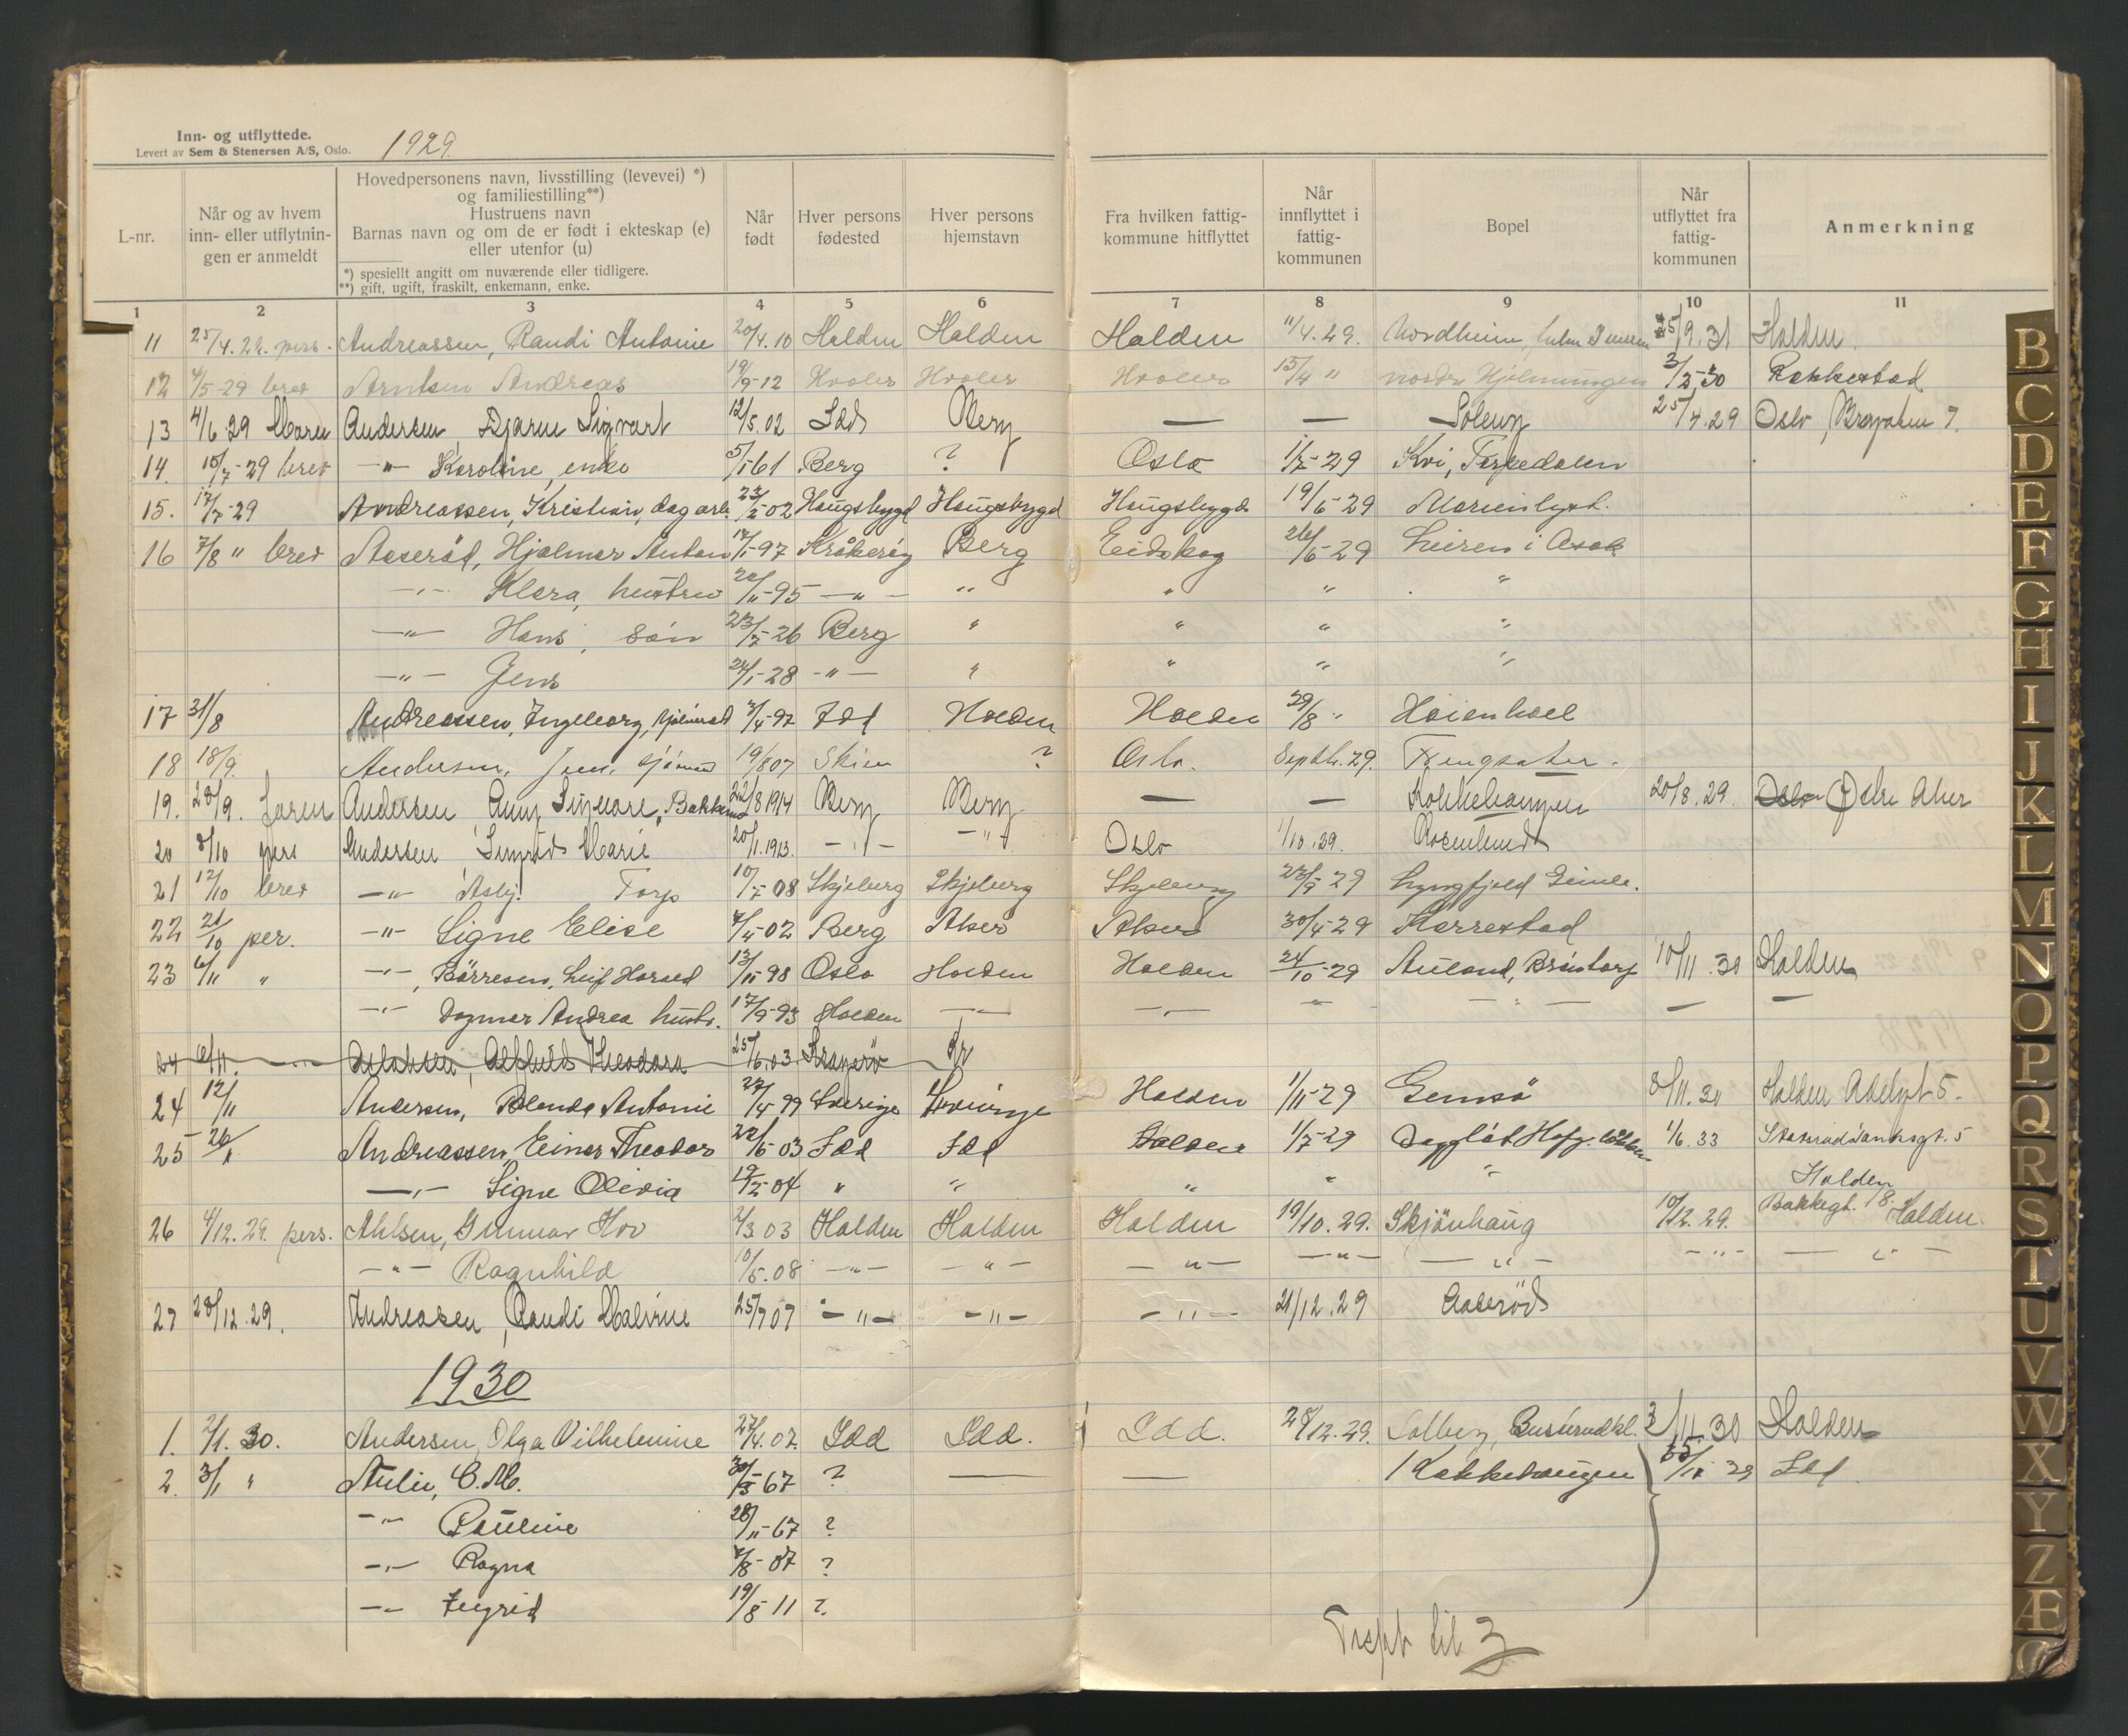 Inn- og utflyttede.
Levert av Sem & Stenersen A/S, Oslo.
1929
L-nr.
Når og av hvem inn- eller utflytnin-gen er anmeldt
Hovedpersonens navn, livsstilling (levevei) *)
og familiestilling**)
Hustruens navn
Barnas navn og om de er født i ekteskap (e)
eller utenfor (u)
*) spesiellt angitt om nuværende eller tidligere.
**) gift, ugift, fraskilt, enkemann, enke.
Når født
Hver persons fødested
Hver persons hjemstavn
Fra hvilken fattig-kommune hitflyttet
Når innflyttet i fattig-kommunen
Bopel
Når utflyttet fra fattig-kommunen
Anmerkning
1 2 3 4 5 6 7 8 9 10 11
11 25/4.29. pers. Andreassen, Randi Antonie 20/4.10 Halden Halden Halden 11/4.29. Nordheim 25/9.31 Halden
12 4/5-29 brev Arntsen Andreas 19/9-12 Hvaler Hvaler Hvaler 15/4 " nordre Hjelmungen 3/2-30 Rakkestad
13 4/6.29 Maren Andersen, Bjarne Sigvart 12/5.02 Idd Berg — — Soleng 25/4.29 Oslo,
14. 15/7-29 brev -"- Karoline, enke 5/1-61 Berg ? Oslo 1/7-29 Kvi, Torpedalen
15. 17/7-29 Andreassen, Kristian, dagarb. 23/2-02 Haugsbygd Haugsbygd Haugsbygd 19/6-29 Marienlyst.
16 7/8 " brev Aaserød, Hjalmar Anton 17/1-97 Kråkerøy Berg Eidskog 26/6-29 Leiren i Asak
-"- Klara, hustru 22/11-95 -"- " " " "
-"- Hans, sön 23/7-26 Berg " " " "
-"- Jens 24/1-28 -"- " " " "
17 31/8 Andreassen, Ingeborg, 3/4-97 Idd Halden Halden 29/8 " Høienhall
18 18/9. Andersen, Jens, sjömand 19/8 07 Skien ? Oslo. Septbr. 29.
19. 20/9. Andersen Anny Bakken 22/8 1914 Berg Berg — — Kokkehaugen 20/8.29. Oslo Østre Aker
20 8/10 pers Andersen Sigrid Marie 20/1.1913. -"- -"- Oslo 1/10.29. Rosenlund
21 12/10 brev -"- Asbj. Torp 10/7-08 Skjeberg Skjeberg Skjeberg 23/9-29 Lyngfjeld Gimle.
22 21/10 per. -"- Signe Elise 4/4-02 Berg Aker Aker 30/4-29 Karrestad
23 6/11 " -"-, Börresen, Leif Harald 13/11-98 Oslo Halden Halden 24/10-29 Auland, 10/11.30 Halden
-"- Dagmar Andrea hustr. 17/9-93 Halden -"- -"- " -"- — —
24 6/11. Theodora 25/6.03 Kragerø Kr
24 12/11 Andersen, Blenda Antonie 27/4-99 Sverige Sverige Halden 1/11-29 Gemsø 8/11.30 Halden 5.
25 26/1 Andreassen, Einar Theodor 22/6-03 Idd Idd Halden 1/7-29 1/6.33 5
-"- Signe Olivia 19/2-04 " " " " " Halden
26 4/12.29. pers. Ahlsen, Gunnar Hov 2/3.03 Halden Halden Halden 19/10.29. Skjönhaug 10/12.29. Bakkegt. 18. Halden.
-"- Ragnhild 10/5.08 -"- -"- -"- -"- -"- -"- -"-
27 28/12.29. Andreasen, Randi Malvine 25/7 07 -"- -"- -"- 21/12.29 Aaserød
1930
1. 2/1.30. Andersen, Olga Vilhelmine 27/4.07. Idd Idd. Idd. 28/12.29. Solberg, 3/11.30 Halden
2. 3/1 " Aulie, C.M. 30/3-67 ? — — Kokkehaugen 29 Idd
-"- Pauline 28/11-67 ?
-"- Ragna 7/8-07 ?
-"- Ingrid 19/8-11 ?
til 3
B
C
D
E
F
G
H
I
J
K
L
M
N
O
P
Q
R
S
T
U
V
W
X
Y
Z
Æ
Ø